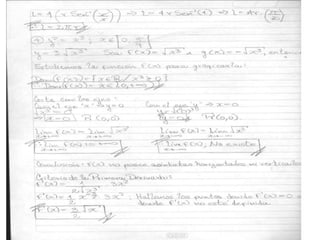 L = 4 (r Sen⁻¹(x/r)) ⇒ L = 4r Sen⁻¹(1) ⇒ L = 4r (π/2)
L = 2πr
y² = x³ ; x ∈ [0,
y = ± √x³ Sea f(x) = √x³ ∧ g(x) = -√x³,
Estudiemos la función f(x) para graficarla:
Dom f(x) = {x ∈ R / x³ ≥ 0}
Dom f(x) = [0, +∞)
Corte con los ejes:
Con el eje x → y = 0 Con el eje y → x = 0
x = 0 (0,0) (0,0)
Lim f(x) = Lim √x³ Lim f(x) = Lim √x³
Lim f(x) = +∞ Lim f(x), No existe
Conclusión: f(x) no posee asíntotas horizontales ni verticales
Criterio de la Primera Derivada:
f'(x) = 1/(2√x³) · 3x² Hallemos los puntos donde f'(x) = 0
donde f'(x) no este definida
f'(x) = 3/2 √x